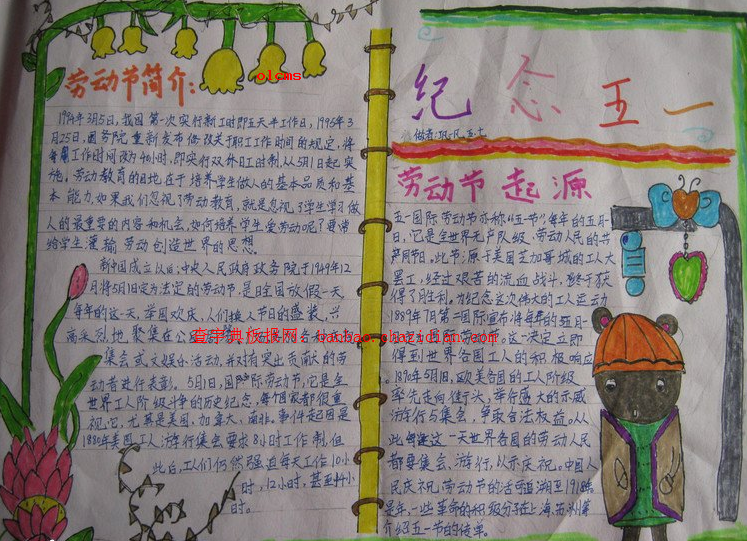 劳动节简介:
olcms
1994年3月5日,我国第一次实行新工时即五天半工作日,1995年3
月25日,国务院重新发布修改关于职工作时间的规定,将
每周工作时间改为40小时,即实行双休日工时制,从5月1日起实
施,劳动教育的目地,在于培养学生做人的基本品质和基
本能力,如果我们忽视了劳动教育,就是忽视了学生学习做
人的最重要的内容和机会,如何培养学生爱劳动呢?要常
给学生灌输劳动创造世界的思想。
新中国成立以后,中央人民政府政务院于1949年12
月将5月1日定为法定的劳动节,是日全国放假一天
每年的这一天,举国欢庆,人们换上节日的盛装,兴
高采烈地聚集在公
集会或文娱活动,并对有突出贡献的劳
动者进行表彰。5月1日,国际劳动节,它是全
世界工人阶级斗争的历史纪念,每个国家都很重
视它,尤其是美国、加拿大、南非。事件起因是
1880年美国工人游行集会要求8小时工作制,但
此后,工人们仍然强迫每天工作10小
时,12小时,甚至14小
时。
查字典板报网:banbao.chazidian.com
纪念五一
做者:
劳动节起源
五一国际劳动节亦称"五一节",每年的五月一
日,它是全世界无产队级、劳动人民的共
声同节日,此节源于美国芝加哥城的工人大
罢工,经过艰苦的流血战斗,终于获
得了月生利,为纪念这次伟大的工人运动
1889年7月第二国际宣布将每年的五月一
国际劳动节。这一决定立即
得到世界各国工人的积极响应
。1890年5月1日,欧美各国的工人阶级
率先走向街头,举行盛大的示威
游行与集会,争取合法权益。从
此每逢这一天世界各国的劳动人民
都要集会、游行,以示庆祝。中国人
民庆祝劳动节的活动追溯至1918年
是年,一些革命的积级分子在上海、苏州等
介绍五一节的传单。